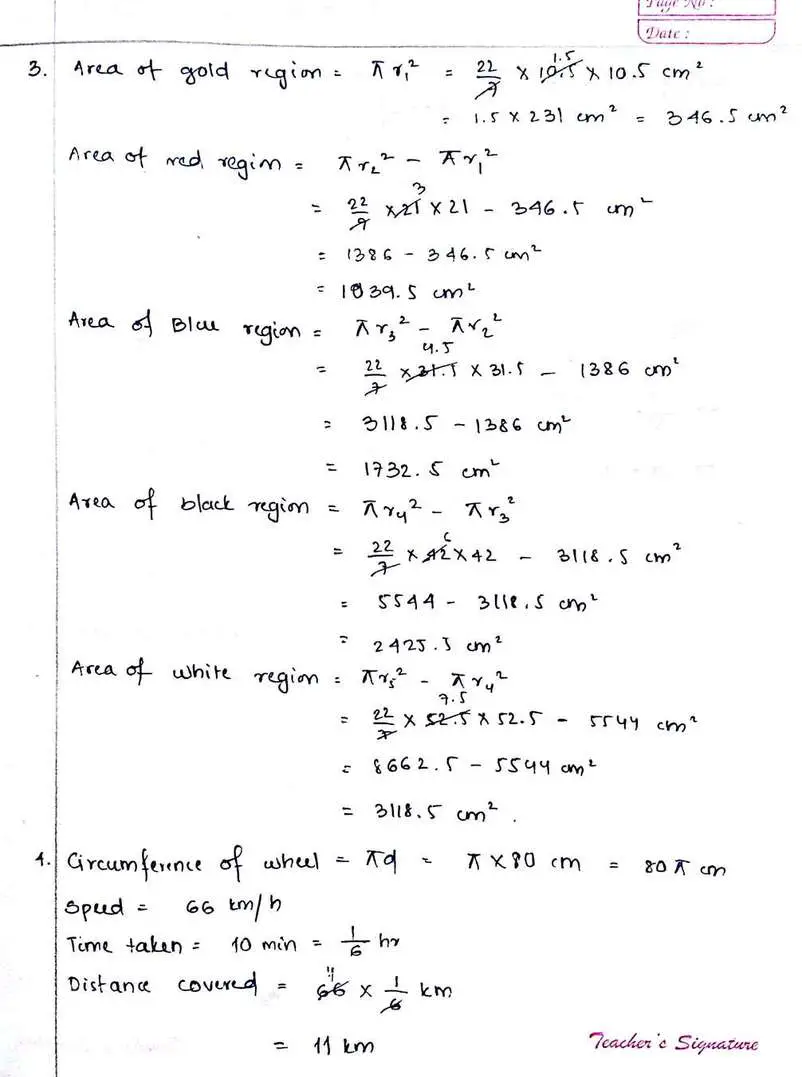 Page No :
Date :
3. Area of gold region = π r₁² = 22/7 × 10.5 × 10.5 cm²
1.5
= 1.5 × 231 cm² = 346.5 cm²
Area of red regin = π r₂² − π r₁²
3
= 22/7 × 21 × 21 − 346.5 cm²
= 1386 − 346.5 cm²
= 1039.5 cm²
Area of Blue region = π r₃² − π r₂²
4.5
= 22/7 × 31.5 × 31.5 − 1386 cm²
= 3118.5 − 1386 cm²
= 1732.5 cm²
Area of black region = π r₄² − π r₃²
6
= 22/7 × 42 × 42 − 3118.5 cm²
= 5544 − 3118.5 cm²
= 2425.5 cm²
Area of white region = π r₅² − π r₄²
7.5
= 22/7 × 52.5 × 52.5 − 5544 cm²
= 8662.5 − 5544 cm²
= 3118.5 cm².
4. Circumference of wheel = πd = π × 80 cm = 80 π cm
Speed = 66 km/h
Time taken = 10 min = 1/6 hr
11
Distance covered = 66 × 1/6 km
= 11 km
Teacher's Signature